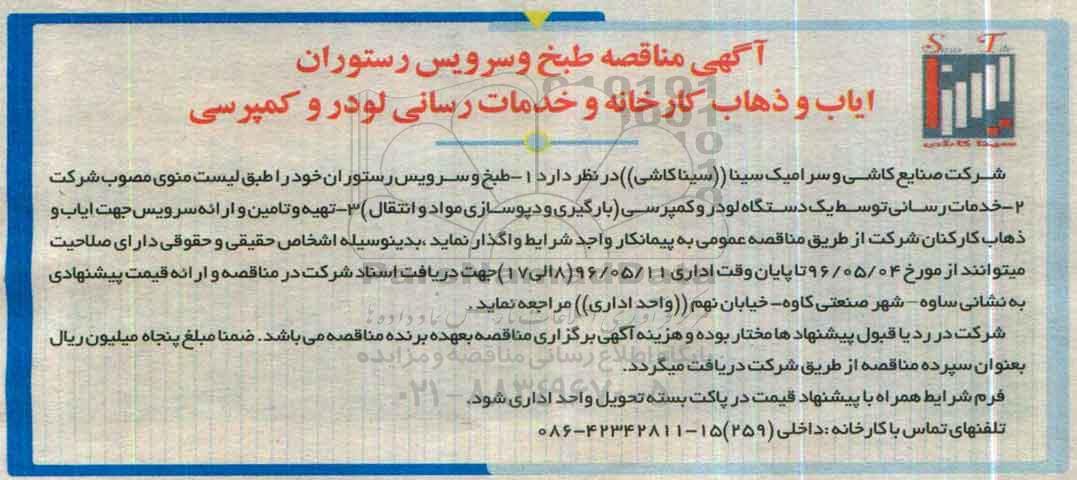 آگهی مناقصه طبخ وسرویس رستوران
ایاب و ذهاب کارخانه و خدمات رسانی لودر و کمپرسی
Sina Tile
سینا کاشی
شرکت صنایع کاشی و سرامیک سینا ((سیناکاشی)) در نظر دارد ۱-طبخ و سرویس رستوران خود را طبق لیست منوی مصوب شرکت
۲-خدمات رسانی توسط یک دستگاه لودر و کمپرسی (بارگیری و دپوسازی مواد و انتقال) ۳-تهیه و تامین و ارائه سرویس جهت ایاب و
ذهاب کارکنان شرکت از طریق مناقصه عمومی به پیمانکار واجد شرایط واگذار نماید ،بدینوسیله اشخاص حقیقی و حقوقی دارای صلاحیت
میتوانند از مورخ ۹۶/۰۵/۰۴ تا پایان وقت اداری ۹۶/۰۵/۱۱ (۸الی۱۷) جهت دریافت اسناد شرکت در مناقصه و ارائه قیمت پیشنهادی
به نشانی ساوه- شهر صنعتی کاوه- خیابان نهم ((واحد اداری)) مراجعه نماید.
شرکت در رد یا قبول پیشنهادها مختار بوده و هزینه آگهی برگزاری مناقصه بعهده برنده مناقصه می باشد. ضمنا مبلغ پنجاه میلیون ریال
بعنوان سپرده مناقصه از طریق شرکت دریافت میگردد.
فرم شرایط همراه با پیشنهاد قیمت در پاکت بسته تحویل واحد اداری شود.
تلفنهای تماس با کارخانه :داخلی (۲۵۹) ۱۵-۴۲۳۴۲۸۱۱-۰۸۶
ParsNamadData
پایگاه اطلاع رسانی مناقصه و مزایده
۰۲۱-۸۸۳۴۹۶۷۰-۵